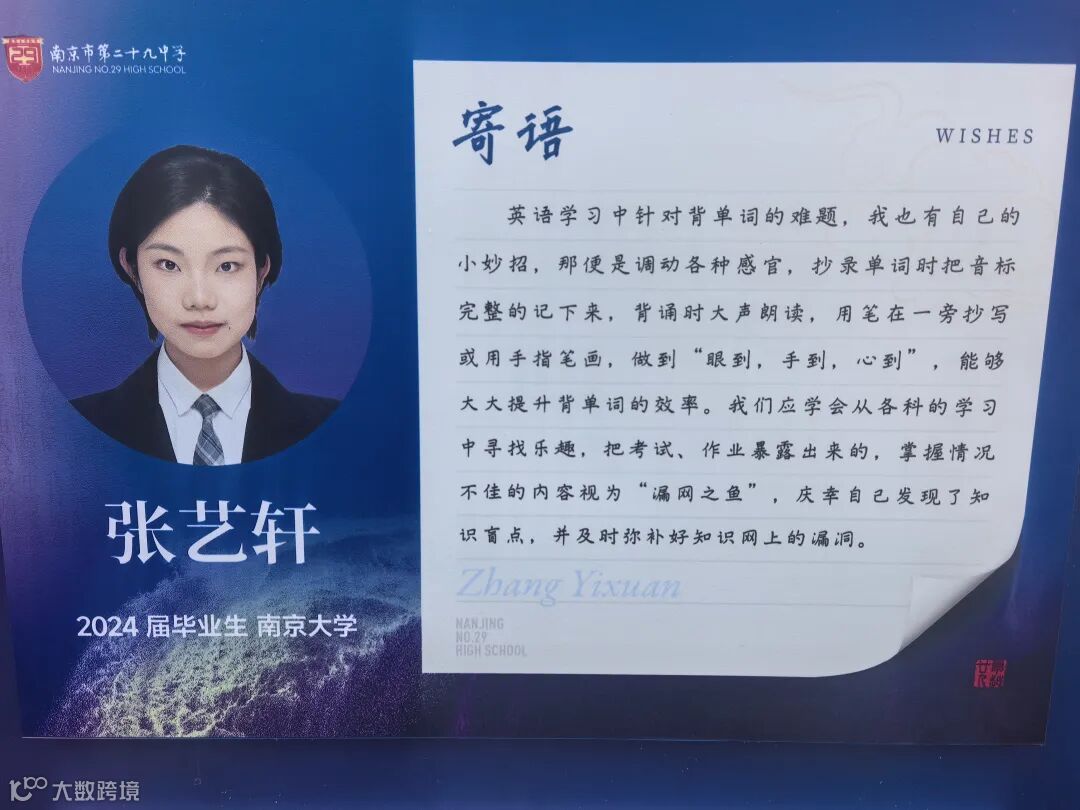 南京市第二十九中学
NANJING NO.29 HIGH SCHOOL
寄语
WISHES
英语学习中针对背单词的难题，我也有自己的
小妙招，那便是调动各种感官，抄录单词时把音标
完整的记下来，背诵时大声朗读，用笔在一旁抄写
或用手指笔画，做到“眼到，手到，心到”，能够
大大提升背单词的效率。我们应学会从各科的学习
中寻找乐趣，把考试、作业暴露出来的，掌握情况
不佳的内容视为“漏网之鱼”，庆幸自己发现了知
识盲点，并及时弥补好知识网上的漏洞。
Zhang Yixuan
NANJING
NO.29
HIGH SCHOOL
张艺轩
2024 届毕业生 南京大学
大数跨境